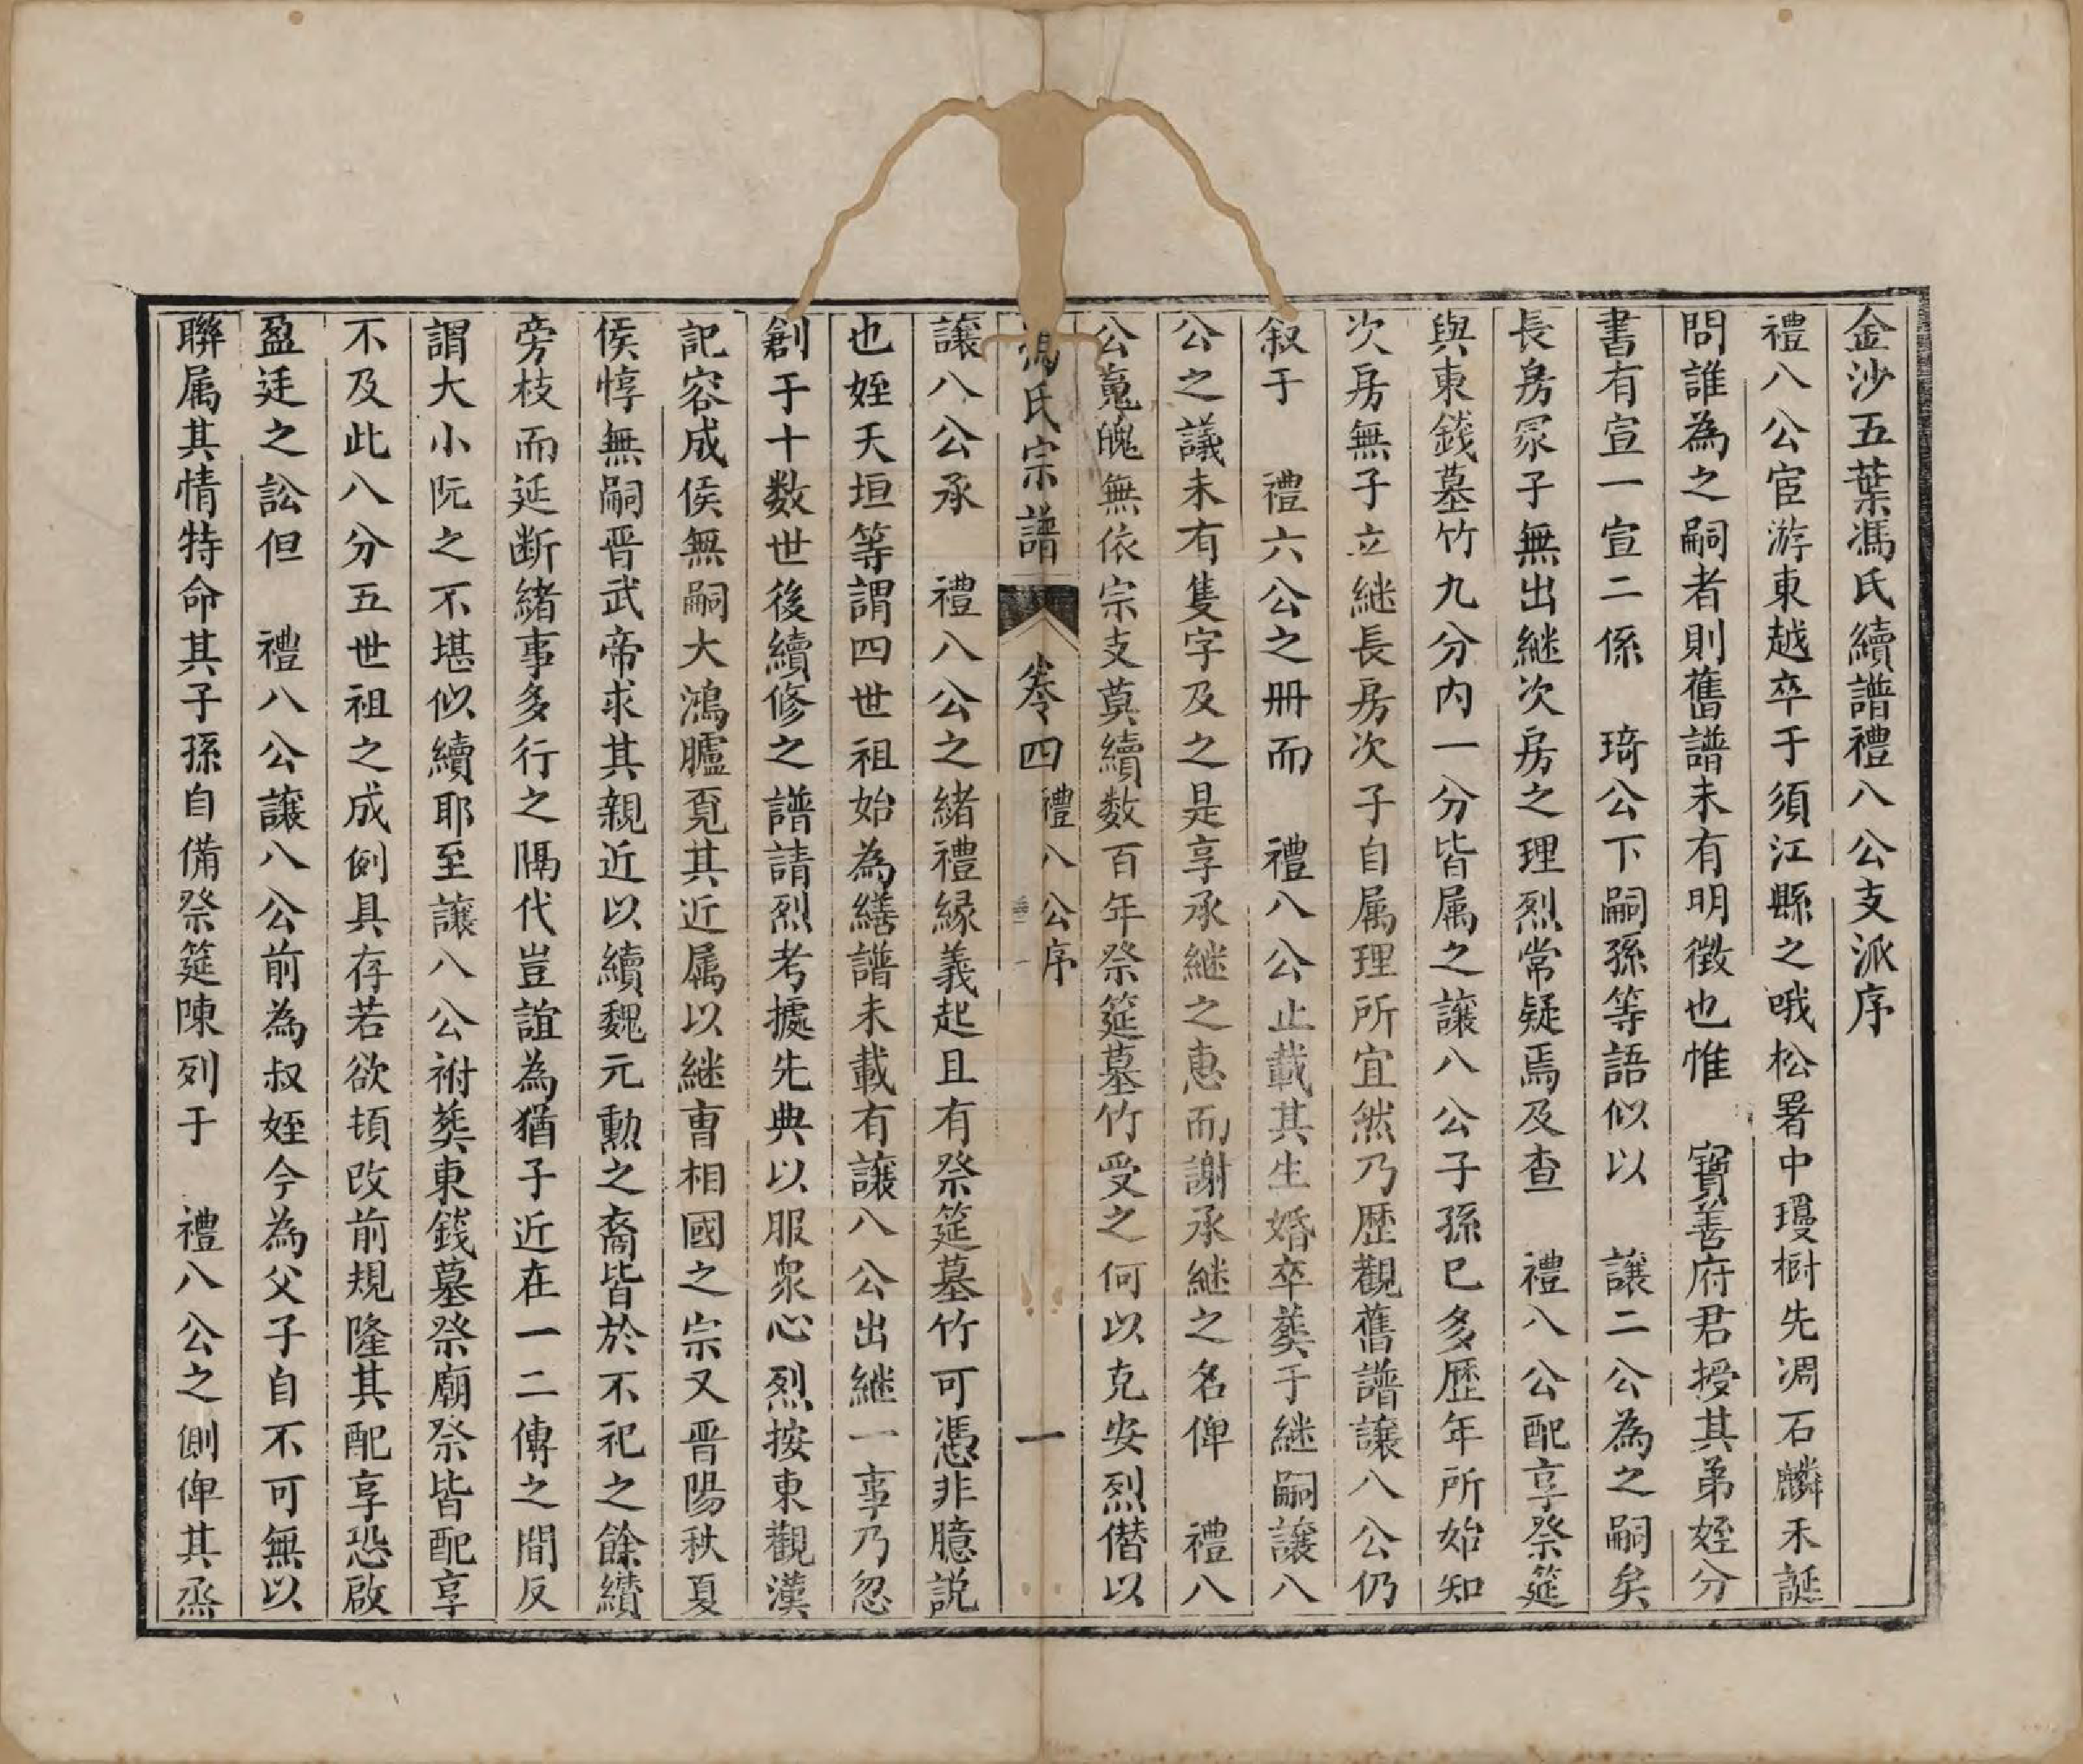 金沙五葉馮氏續譜禮八公支派序
禮八公宦游東越卒于須江縣之哦松署中瓊樹先凋石麟未誕
問誰為之嗣者則舊譜未有明徵也惟　寶善府君授其弟姪分
書有宣一宣二係　琦公下嗣孫等語似以　讓二公為之嗣矣
長房冢子無出継次房之理烈常疑焉及查　禮八公配享祭筵
與東錢墓竹九分内一分皆属之讓八公子孫已多歷年所始知
次房無子立継長房次子自属理所宜然乃歷觀舊譜讓八公仍
叙于　禮六公之冊而　禮八公止載其生婚卒葬于継嗣讓八
公之議未有隻字及之是享承継之惠而謝承継之名俾　禮八
公蒐魄無依宗支莫續数百年祭筵墓竹受之何以克安烈僭以
馮氏宗譜　卷四　禮八公序　一
讓八公承　禮八公之緒禮緣義起且有祭筵墓竹可憑非臆説
也姪天垣等謂四世祖始為繕譜未載有讓八公出継一事乃忽
創于十数世後續修之譜請烈考據先典以服衆心烈按東觀漢
記容成侯無嗣大鴻臚覔其近属以継曹相國之宗又晋陽秋夏
侯惇無嗣晋武帝求其親近以續魏元勳之裔皆於不祀之餘纘
旁枝而延断緒事多行之隔代豈誼為猶子近在一二傳之間反
謂大小阮之不堪似續耶至讓八公祔葬東錢墓祭廟祭皆配享
不及此八分五世祖之成例具存若欲頓改前規隆其配享恐啟
盈廷之訟但　禮八公讓八公前為叔姪今為父子自不可無以
聯属其情特命其子孫自備祭筵陳列于　禮八公之側俾其烝